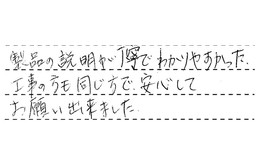 製品の説明が丁寧でわかりやすかった.
工事の方も同じ方で、安心して
お願い出来ました.